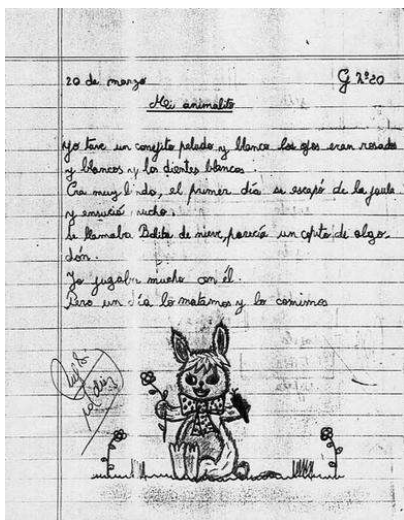 20 de marzo G Nº20
Mi animalito
Yo tuve un conejito peludo y blanco los ojos eran rosados
y blancos y los dientes blancos.
Era muy lindo, el primer día se escapó de la jaula
y ensució mucho.
se llamaba Bolita de nieve, parecía un copito de algo-
dón.
Yo jugaba mucho con él.
Pero un día lo matamos y lo comimos